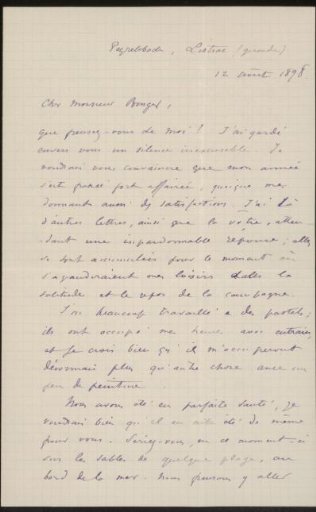 Peyrelebade, Listrac (gironde)
12 août 1898
Cher Monsieur Bonger,
que pensez-vous de moi! J'ai gardé
envers vous un silence inexcusable. Je
voudrais vous convaincre que mon année
s'est passée fort affairée, quoique me
donnant aussi des satisfactions. J'ai là
d'autres lettres, ainsi que la vôtre, atten
dant une impardonnable réponse; elles
se sont accumulées pour le moment où
s'agrandiraient mes loisirs dans la
solitude et le repos de la campagne.
J'ai beaucoup travaillé à des pastels;
ils ont occupé me heures avec entrain,
et je crois bien qu'il m'occuperont
désormais plus qu'autre chose avec un
peu de peinture.
Nous avons été en parfaite santé, je
voudrais bien qu'il en ait été de même
pour vous. Seriez-vous, en ce moment-ci
sur les sables de quelque plage, au
bord de la mer. Nous pensons y aller